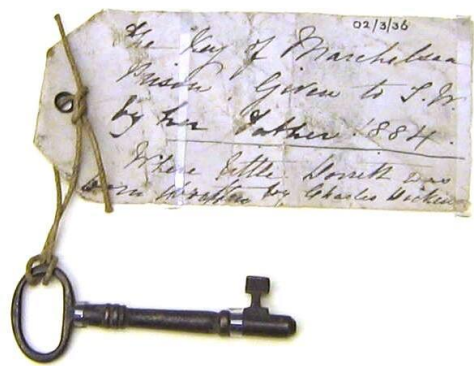 02/3/36
The Key of Marchelsea
Prison. Given to S.W.
by her Father 1884.
Where Little Dorritt was
born written by Charles Dickens